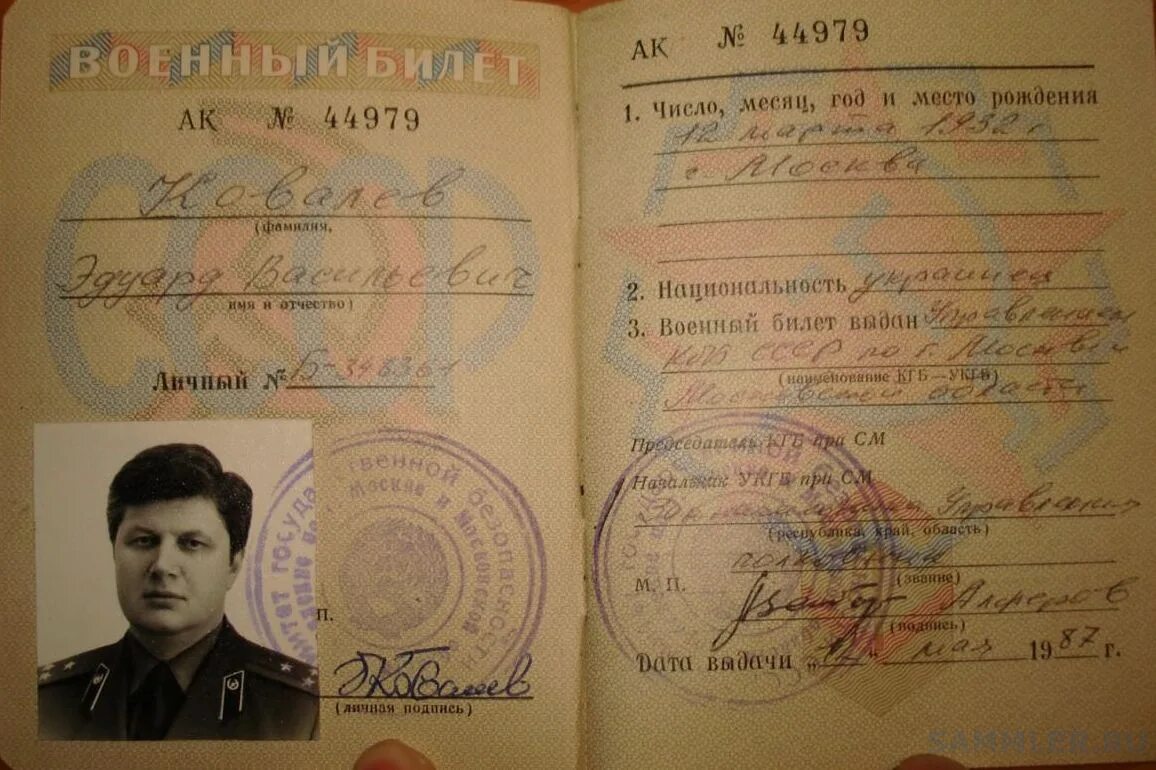 ВОЕННЫЙ БИЛЕТ
АК № 44979
Ковалев
(фамилия,
Эдуард Васильевич
имя и отчество)
Личный № Б-346361
П.
ЭКовалев
(личная подпись)
АК № 44979
1. Число, месяц, год и место рождения
12 марта 1932 г
г. Москва
2. Национальность украинец
3. Военный билет выдан Управлением
КГБ СССР по г. Москве и
(наименование КГБ—УКГБ)
Московской области
Председатель КГБ при СМ
Начальник УКГБ при СМ
Управления
(республика, край, область)
полковник
(звание)
М. П.
Алферов
(подпись)
Дата выдачи „12" мая 1987 г.
SAMMLER.RU